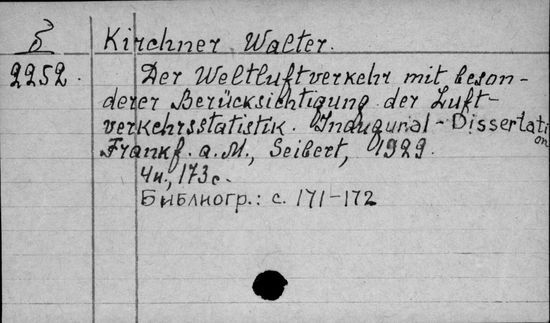 Б Kirchner Walter.
2252. Der Weltluftverkehr mit beson-
derer Berücksichtigung der Luft-
verkehrsstatistik. Inaugural-Dissertation
Frankf. a. M., Seibert, 1929.
4н., 173с.
Библиогр.: с. 171-172